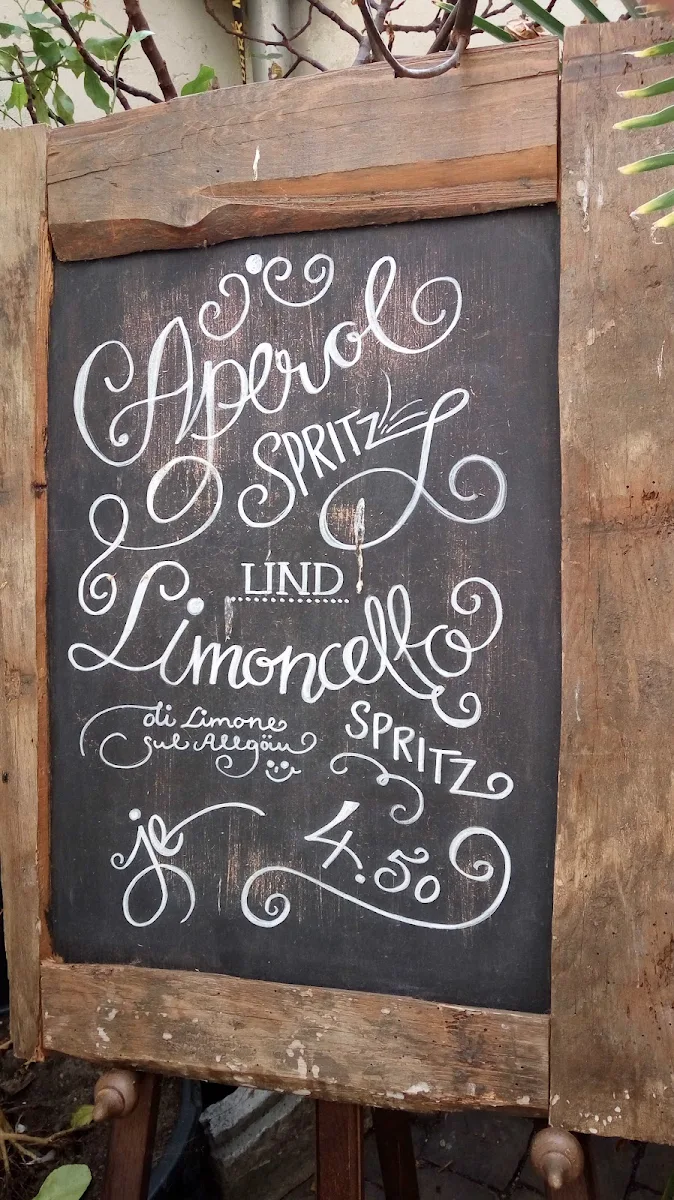 Aperol
SPRITZ
UND
Limoncello
SPRITZ
di Limone
sul Allgäu
je 4.50